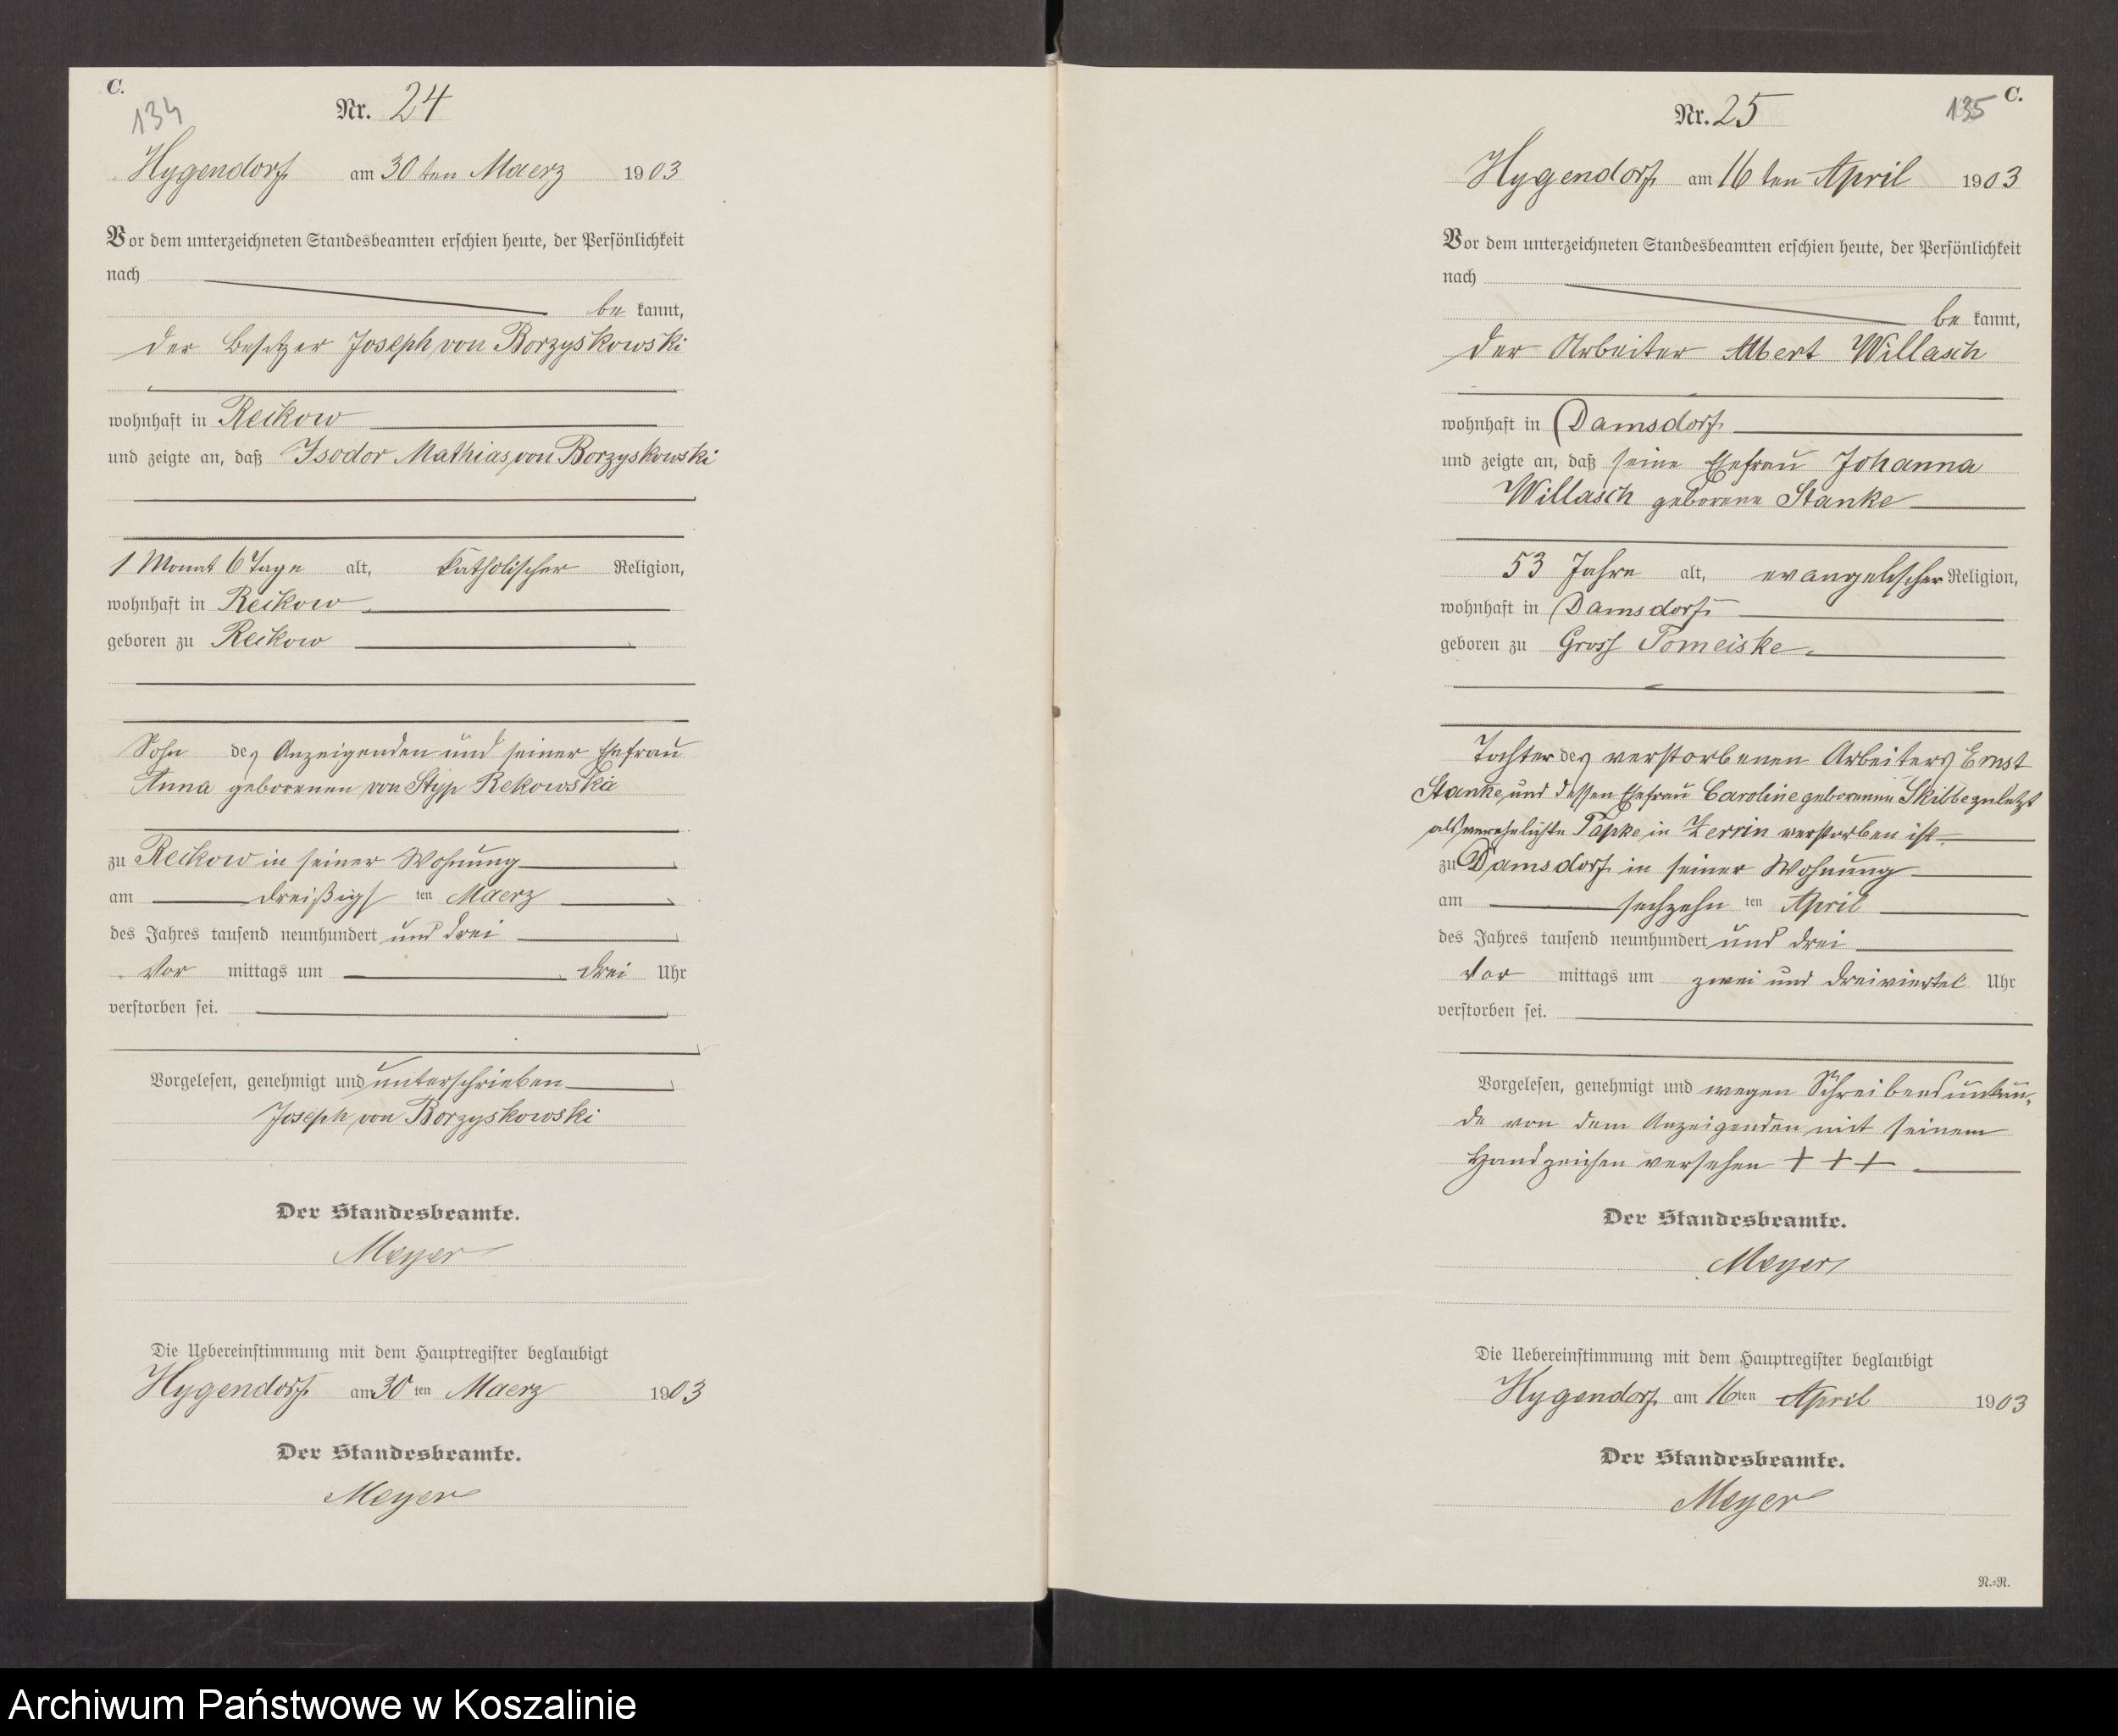 C.
134
Nr. 24
Hygendorf am 30ten Maerz 1903
Vor dem unterzeichneten Standesbeamten erschien heute, der Persönlichkeit
nach
be kannt,
der Besitzer Joseph von Borzyskowski
wohnhaft in Reikow
und zeigte an, daß Isodor Mathias von Borzyskowski
1 Monat 6 Tage alt, katholischer Religion,
wohnhaft in Reikow
geboren zu Reikow
Sohn des Anzeigenden und seiner Ehefrau
Anna geborenen von Styp Rekowska
zu Reikow in seiner Wohnung
am dreißigs ten Maerz
des Jahres tausend neunhundert und drei
Vor mittags um drei Uhr
verstorben sei.
Vorgelesen, genehmigt und unterschrieben
Joseph von Borzyskowski
Der Standesbeamte.
Meyer
Die Uebereinstimmung mit dem Hauptregister beglaubigt
Hygendorf am 30 ten Maerz 1903
Der Standesbeamte.
Meyer
C.
135
Nr. 25
Hygendorf am 16ten April 1903
Vor dem unterzeichneten Standesbeamten erschien heute, der Persönlichkeit
nach
be kannt,
der Arbeiter Albert Willasch
wohnhaft in Damsdorf
und zeigte an, daß seine Ehefrau Johanna
Willasch geborene Stanke
53 Jahre alt, evangelischer Religion,
wohnhaft in Damsdorf
geboren zu Gross Pomeiske
Tochter des verstorbenen Arbeiters Ernst
Stanke und dessen Ehefrau Caroline geborenen Skibbe zuletzt
als verehelichte Papke in Zerrin verstorben ist
zu Damsdorf in seiner Wohnung
am sechzehn ten April
des Jahres tausend neunhundert und drei
Vor mittags um zwei und dreiviertel Uhr
verstorben sei.
Vorgelesen, genehmigt und wegen Schreibensunkun-
de von dem Anzeigenden mit seinem
Handzeichen versehen + + +
Der Standesbeamte.
Meyer
Die Uebereinstimmung mit dem Hauptregister beglaubigt
Hygendorf am 16ten April 1903
Der Standesbeamte.
Meyer
N.=N.
Archiwum Państwowe w Koszalinie